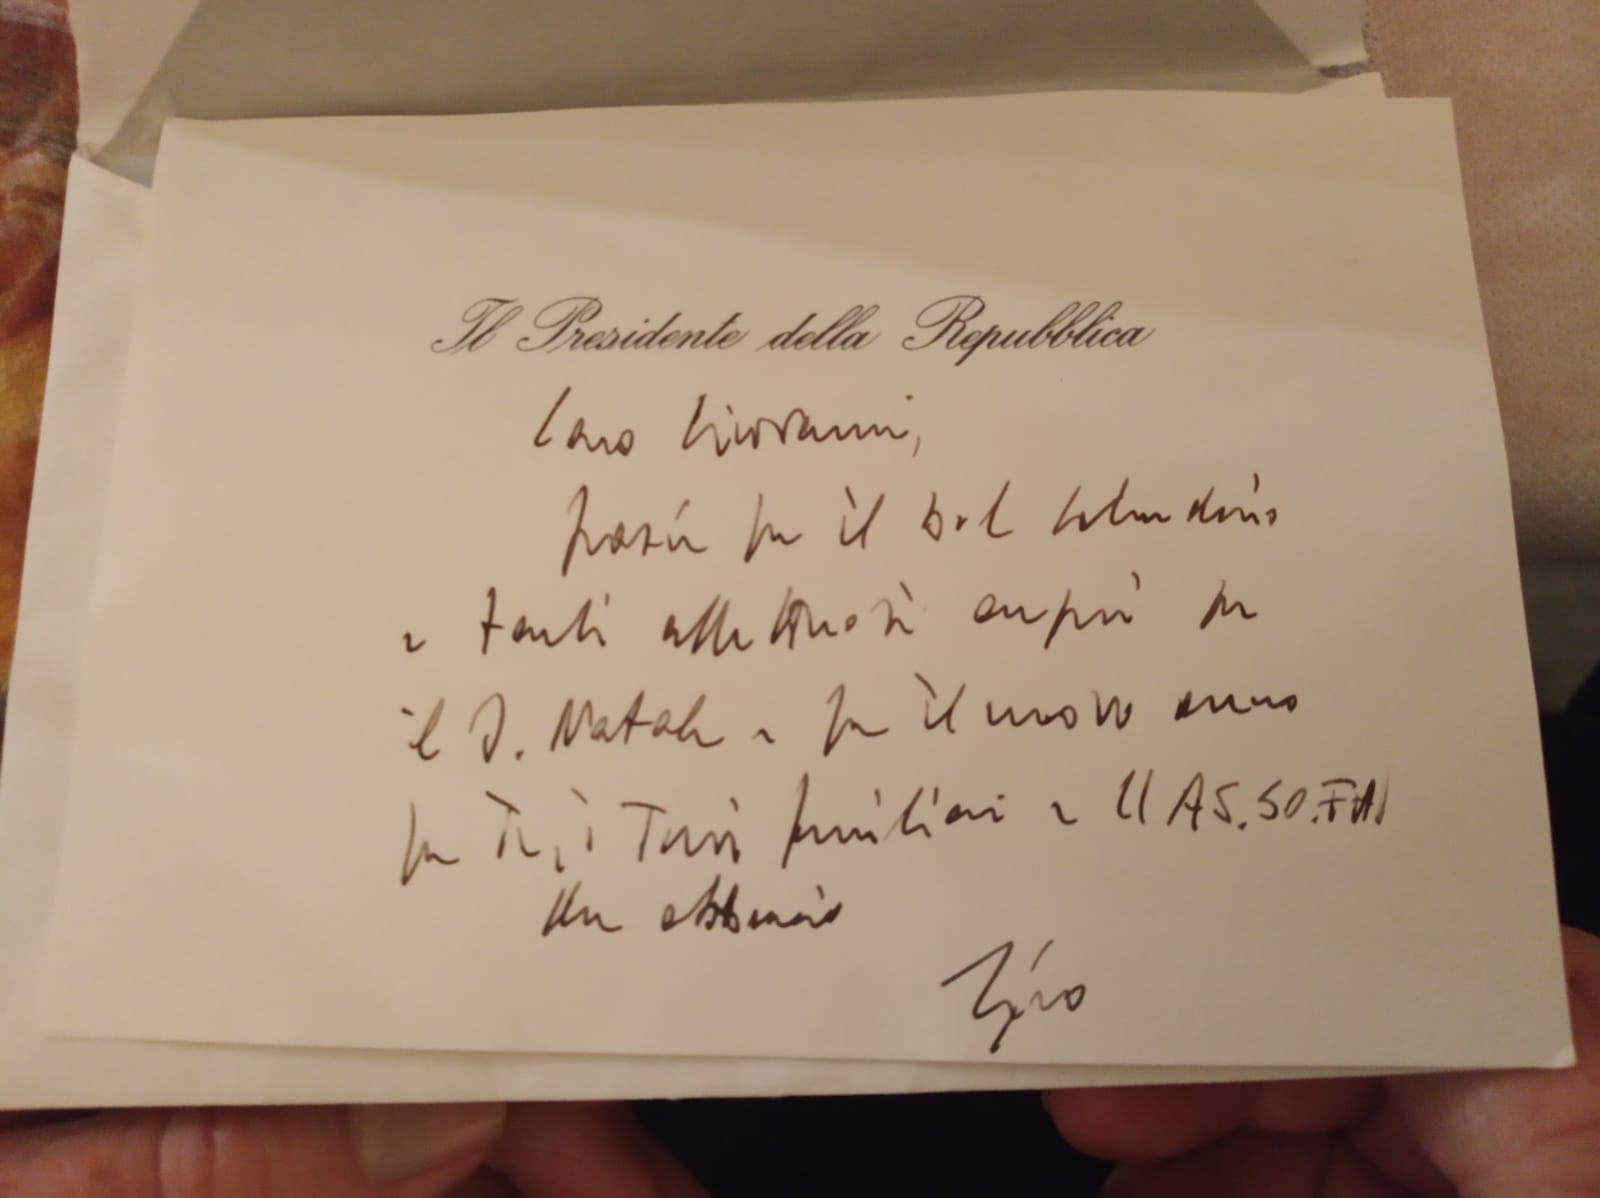 Il Presidente della Repubblica
Caro Giovanni,
grazie per il bel calendario
e tanti affettuosi auguri per
il S. Natale e per il nuovo anno
per Te, i Tuoi familiari e l'AS.SO.FA.
Un abbraccio